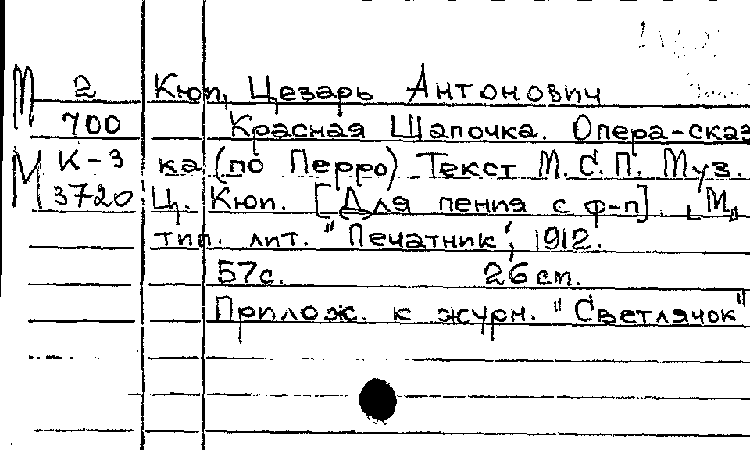 М 2 Кюп, Цезарь Антонович
700 Красная Шапочка. Опера-сказ
М К-3 ка (по Перро) Текст М.С.П. Муз.
3720 Ц. Кюп. [Для пения с ф-п]. "М"
тип. лит. "Печатник", 1912.
57с. 26 см.
Прилож. к журн. "Светлячок"